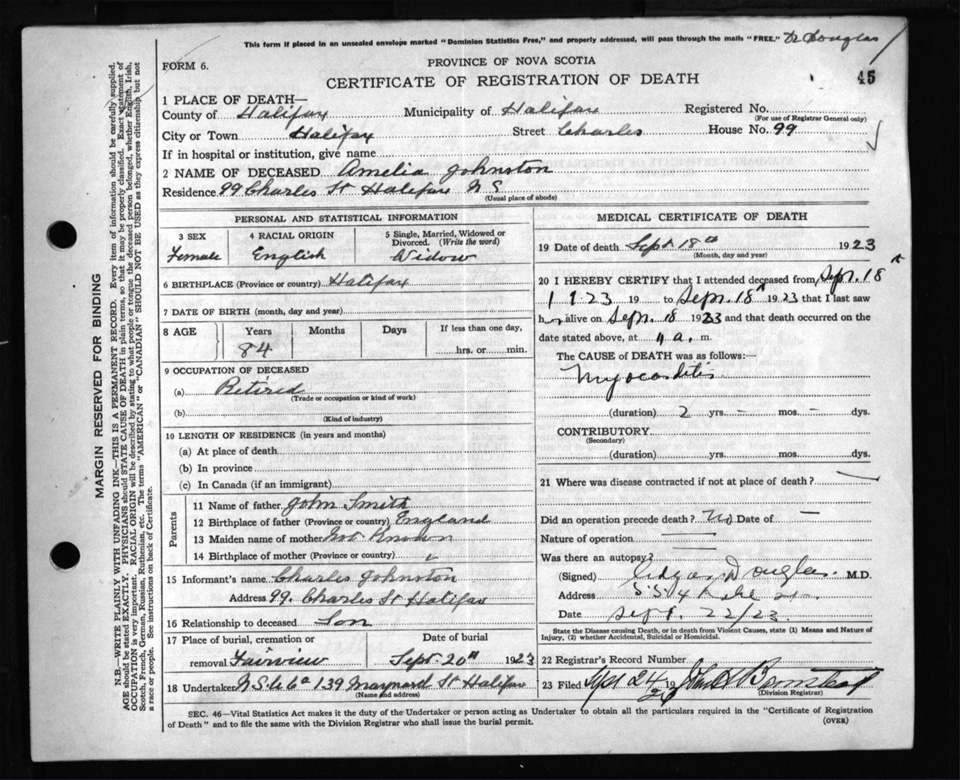 This form if placed in an unsealed envelope marked "Dominion Statistics Free," and properly addressed, will pass through the mails "FREE." Dr Douglas
FORM 6.
PROVINCE OF NOVA SCOTIA
CERTIFICATE OF REGISTRATION OF DEATH
45
1 PLACE OF DEATH—
County of Halifax Municipality of Halifax Registered No.
(For use of Registrar General only)
City or Town Halifax Street Charles House No. 99
If in hospital or institution, give name
2 NAME OF DECEASED Amelia Johnston
Residence 99 Charles St Halifax N S
(Usual place of abode)
PERSONAL AND STATISTICAL INFORMATION
3 SEX Female
4 RACIAL ORIGIN English
5 Single, Married, Widowed or Divorced. (Write the word) Widow
6 BIRTHPLACE (Province or country) Halifax
7 DATE OF BIRTH (month, day and year)
8 AGE Years 84 Months Days If less than one day, hrs. or min.
9 OCCUPATION OF DECEASED
(a) Retired
(Trade or occupation or kind of work)
(b)
(Kind of industry)
10 LENGTH OF RESIDENCE (in years and months)
(a) At place of death
(b) In province
(c) In Canada (if an immigrant)
Parents
11 Name of father John Smith
12 Birthplace of father (Province or country) England
13 Maiden name of mother Not Known
14 Birthplace of mother (Province or country)
15 Informant's name Charles Johnston
Address 99 Charles St Halifax
16 Relationship to deceased Son
17 Place of burial, cremation or removal Fairview
Date of burial Sept 20th 1923
18 Undertaker N S U Co 139 Maynard St Halifax
(Name and address)
MEDICAL CERTIFICATE OF DEATH
19 Date of death Sept 18th 1923
(Month, day and year)
20 I HEREBY CERTIFY that I attended deceased from Sep. 18th
1923 19 to Sep. 18th 1923 that I last saw
her alive on Sep. 18 1923 and that death occurred on the
date stated above, at 11 a. m.
The CAUSE of DEATH was as follows:
Myocarditis
(duration) 2 yrs. – mos. – dys.
CONTRIBUTORY
(Secondary)
(duration) yrs. mos. dys.
21 Where was disease contracted if not at place of death? —
Did an operation precede death? No Date of —
Nature of operation
Was there an autopsy?
(Signed) Douglas M.D.
Address
Date Sept. 22/23.
State the Disease causing Death, or in death from Violent Causes, state (1) Means and Nature of Injury, (2) whether Accidental, Suicidal or Homicidal.
22 Registrar's Record Number
23 Filed Sept 24/23
(Division Registrar)
SEC. 46—Vital Statistics Act makes it the duty of the Undertaker or person acting as Undertaker to obtain all the particulars required in the "Certificate of Registration
of Death" and to file the same with the Division Registrar who shall issue the burial permit.
(OVER)
MARGIN RESERVED FOR BINDING
N.B.—WRITE PLAINLY WITH UNFADING INK—THIS IS A PERMANENT RECORD. Every item of information should be carefully supplied.
AGE should be stated EXACTLY. PHYSICIANS should STATE CAUSE OF DEATH in plain terms, so that it may be properly classified. Exact statement of
OCCUPATION is very important. RACIAL ORIGIN will be described by stating to what people or tongue the deceased person belonged, whether English, Irish,
Scotch, French, German, Russian, Ruthenian, etc. The terms "AMERICAN" or "CANADIAN" SHOULD NOT BE USED as they express citizenship but not
a race or people. See instructions on back of Certificate.